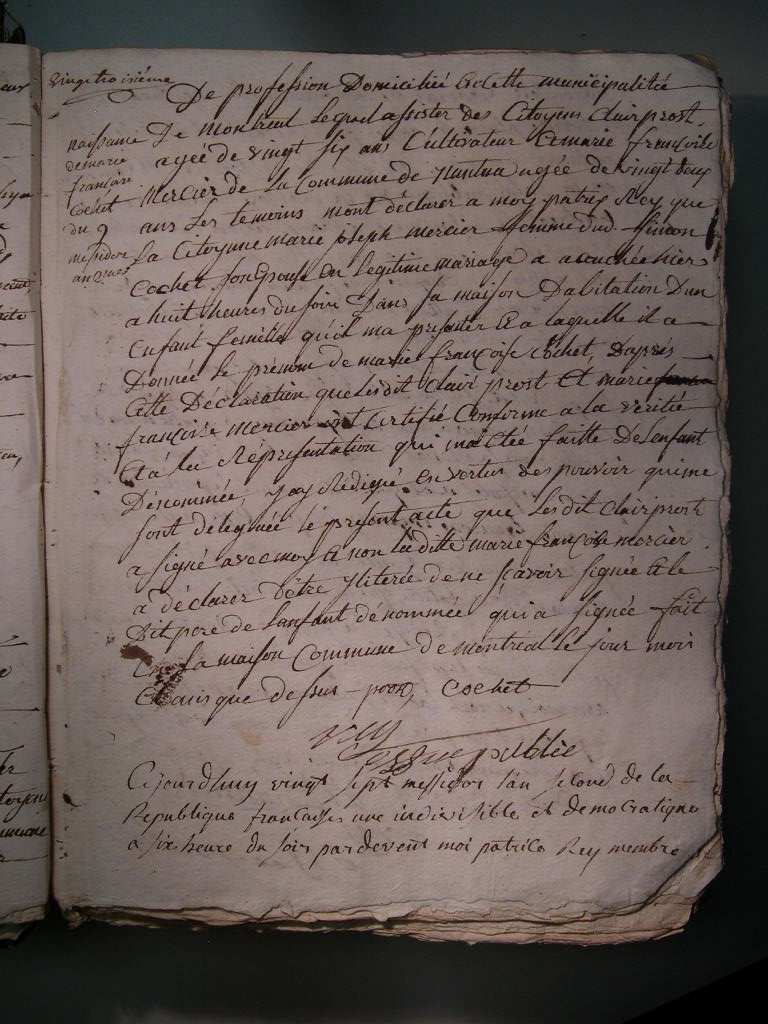 vingtroisiéme
naissance
demarie
françoise
Cochet
du 9
messidore
an 2
De profession Domicilié a Cette municipalitée
De Montreal Lequel assister des Citoyens Clair prost
agée de vingt six ans Cultivateur Et marie françoise
Mercier de la Commune de Nantua agée de vingt deux
ans Les temoins mont déclarer a moy patris Rey que
La Citoyenne marie joseph mercier femme dud
Cochet son Epouse en legitime mariage a acouchée hiers
a huit heures du soir Dans sa maison Dabitation Dun
Enfant femelle qu'il ma presenter Et a laquelle il a
Donnée le prénom de marie françoise Cochet, Daprés
Cette Déclaration que Lesdit Clair prost Et marie
françoise Mercier ont Certifié Conforme a la veritée
Et a la Réprésentation qui ma Etée faitte De Lenfant
Dénommée, jay Rédigé en vertus des pouvoir qui me
sont déleguée le présent acte que Lesdit Clair prost
a signé avec moy Et non la ditte marie françoise mercier
a déclarer Dêtre yliterée de ne scavoir signée Et le
Dit pere de Lanfant dénommée qui a signée fait
En la maison Commune de montreal le jour mois
Et ans que dessus prost, Cochet
Rey
publie
Cejourdhuy vingt sept messidor lan second de la
Republique française une indivisible et democratique
a six heure du soir pardevent moi patrice Rey membre